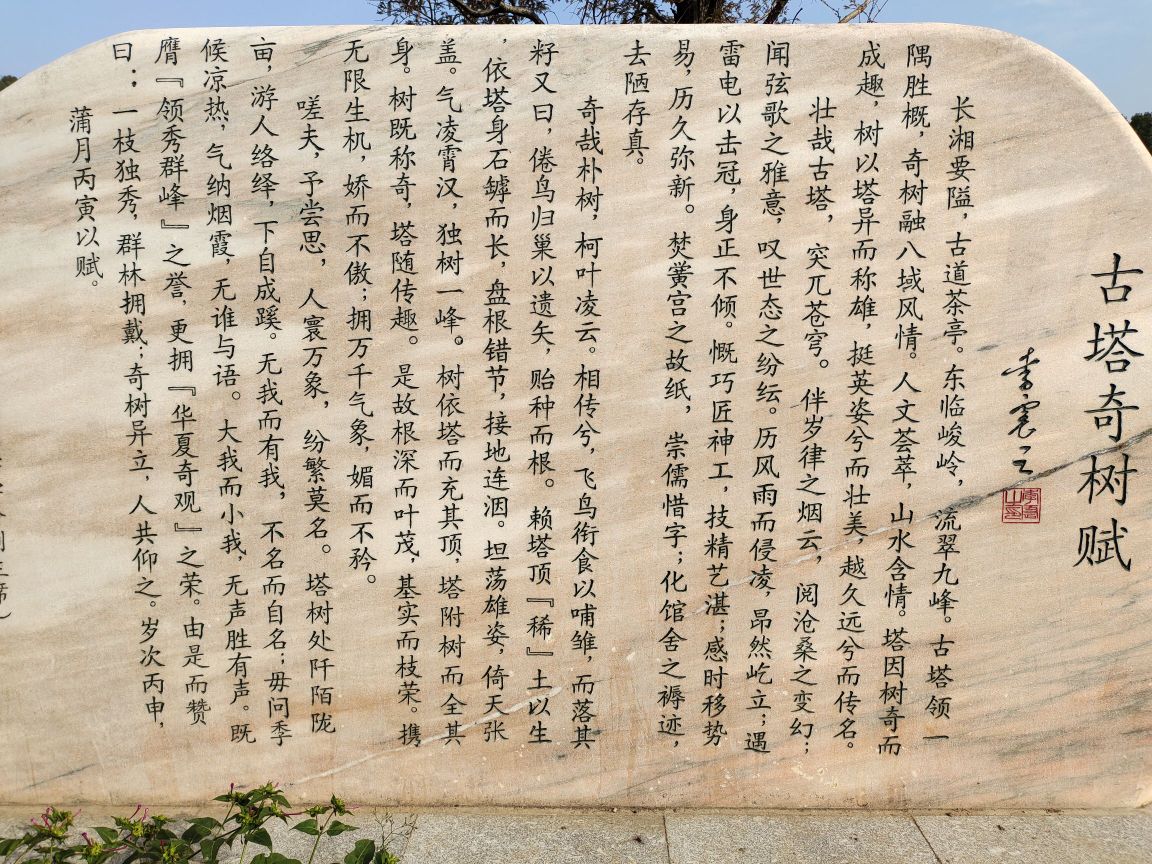 古塔奇树赋
长湘要隘，古道茶亭。东临峻岭，流翠九峰。古塔领一
隅胜概，奇树融八域风情。人文荟萃，山水含情。塔因树奇而
成趣，树以塔异而称雄，挺英姿兮而壮美，越久远兮而传名。
壮哉古塔，突兀苍穹。伴岁律之烟云，阅沧桑之变幻；
闻弦歌之雅意，叹世态之纷纭。历风雨而侵凌，昂然屹立；遇
雷电以击冠，身正不倾。慨巧匠神工，技精艺湛；感时移势
易，历久弥新。焚黉宫之故纸，崇儒惜字；化馆舍之褥迹，
去陋存真。
奇哉朴树，柯叶凌云。相传兮，飞鸟衔食以哺雏，而落其
籽又曰，倦鸟归巢以遗矢，贻种而根。赖塔顶『稀』土以生
，依塔身石罅而长，盘根错节，接地连洇。坦荡雄姿，倚天张
盖。气凌霄汉，独树一峰。树依塔而充其顶，塔附树而全其
身。树既称奇，塔随传趣。是故根深而叶茂，基实而枝荣。携
无限生机，娇而不傲；拥万千气象，媚而不矜。
嗟夫，予尝思，人寰万象，纷繁莫名。塔树处阡陌陇
亩，游人络绎，下自成蹊。无我而有我，不名而自名；毋问季
候凉热，气纳烟霞，无谁与语。大我而小我，无声胜有声。既
膺『领秀群峰』之誉，更拥『华夏奇观』之荣。由是而赞
曰；一枝独秀，群林拥戴；奇树异立，人共仰之。岁次丙申，
蒲月丙寅以赋。